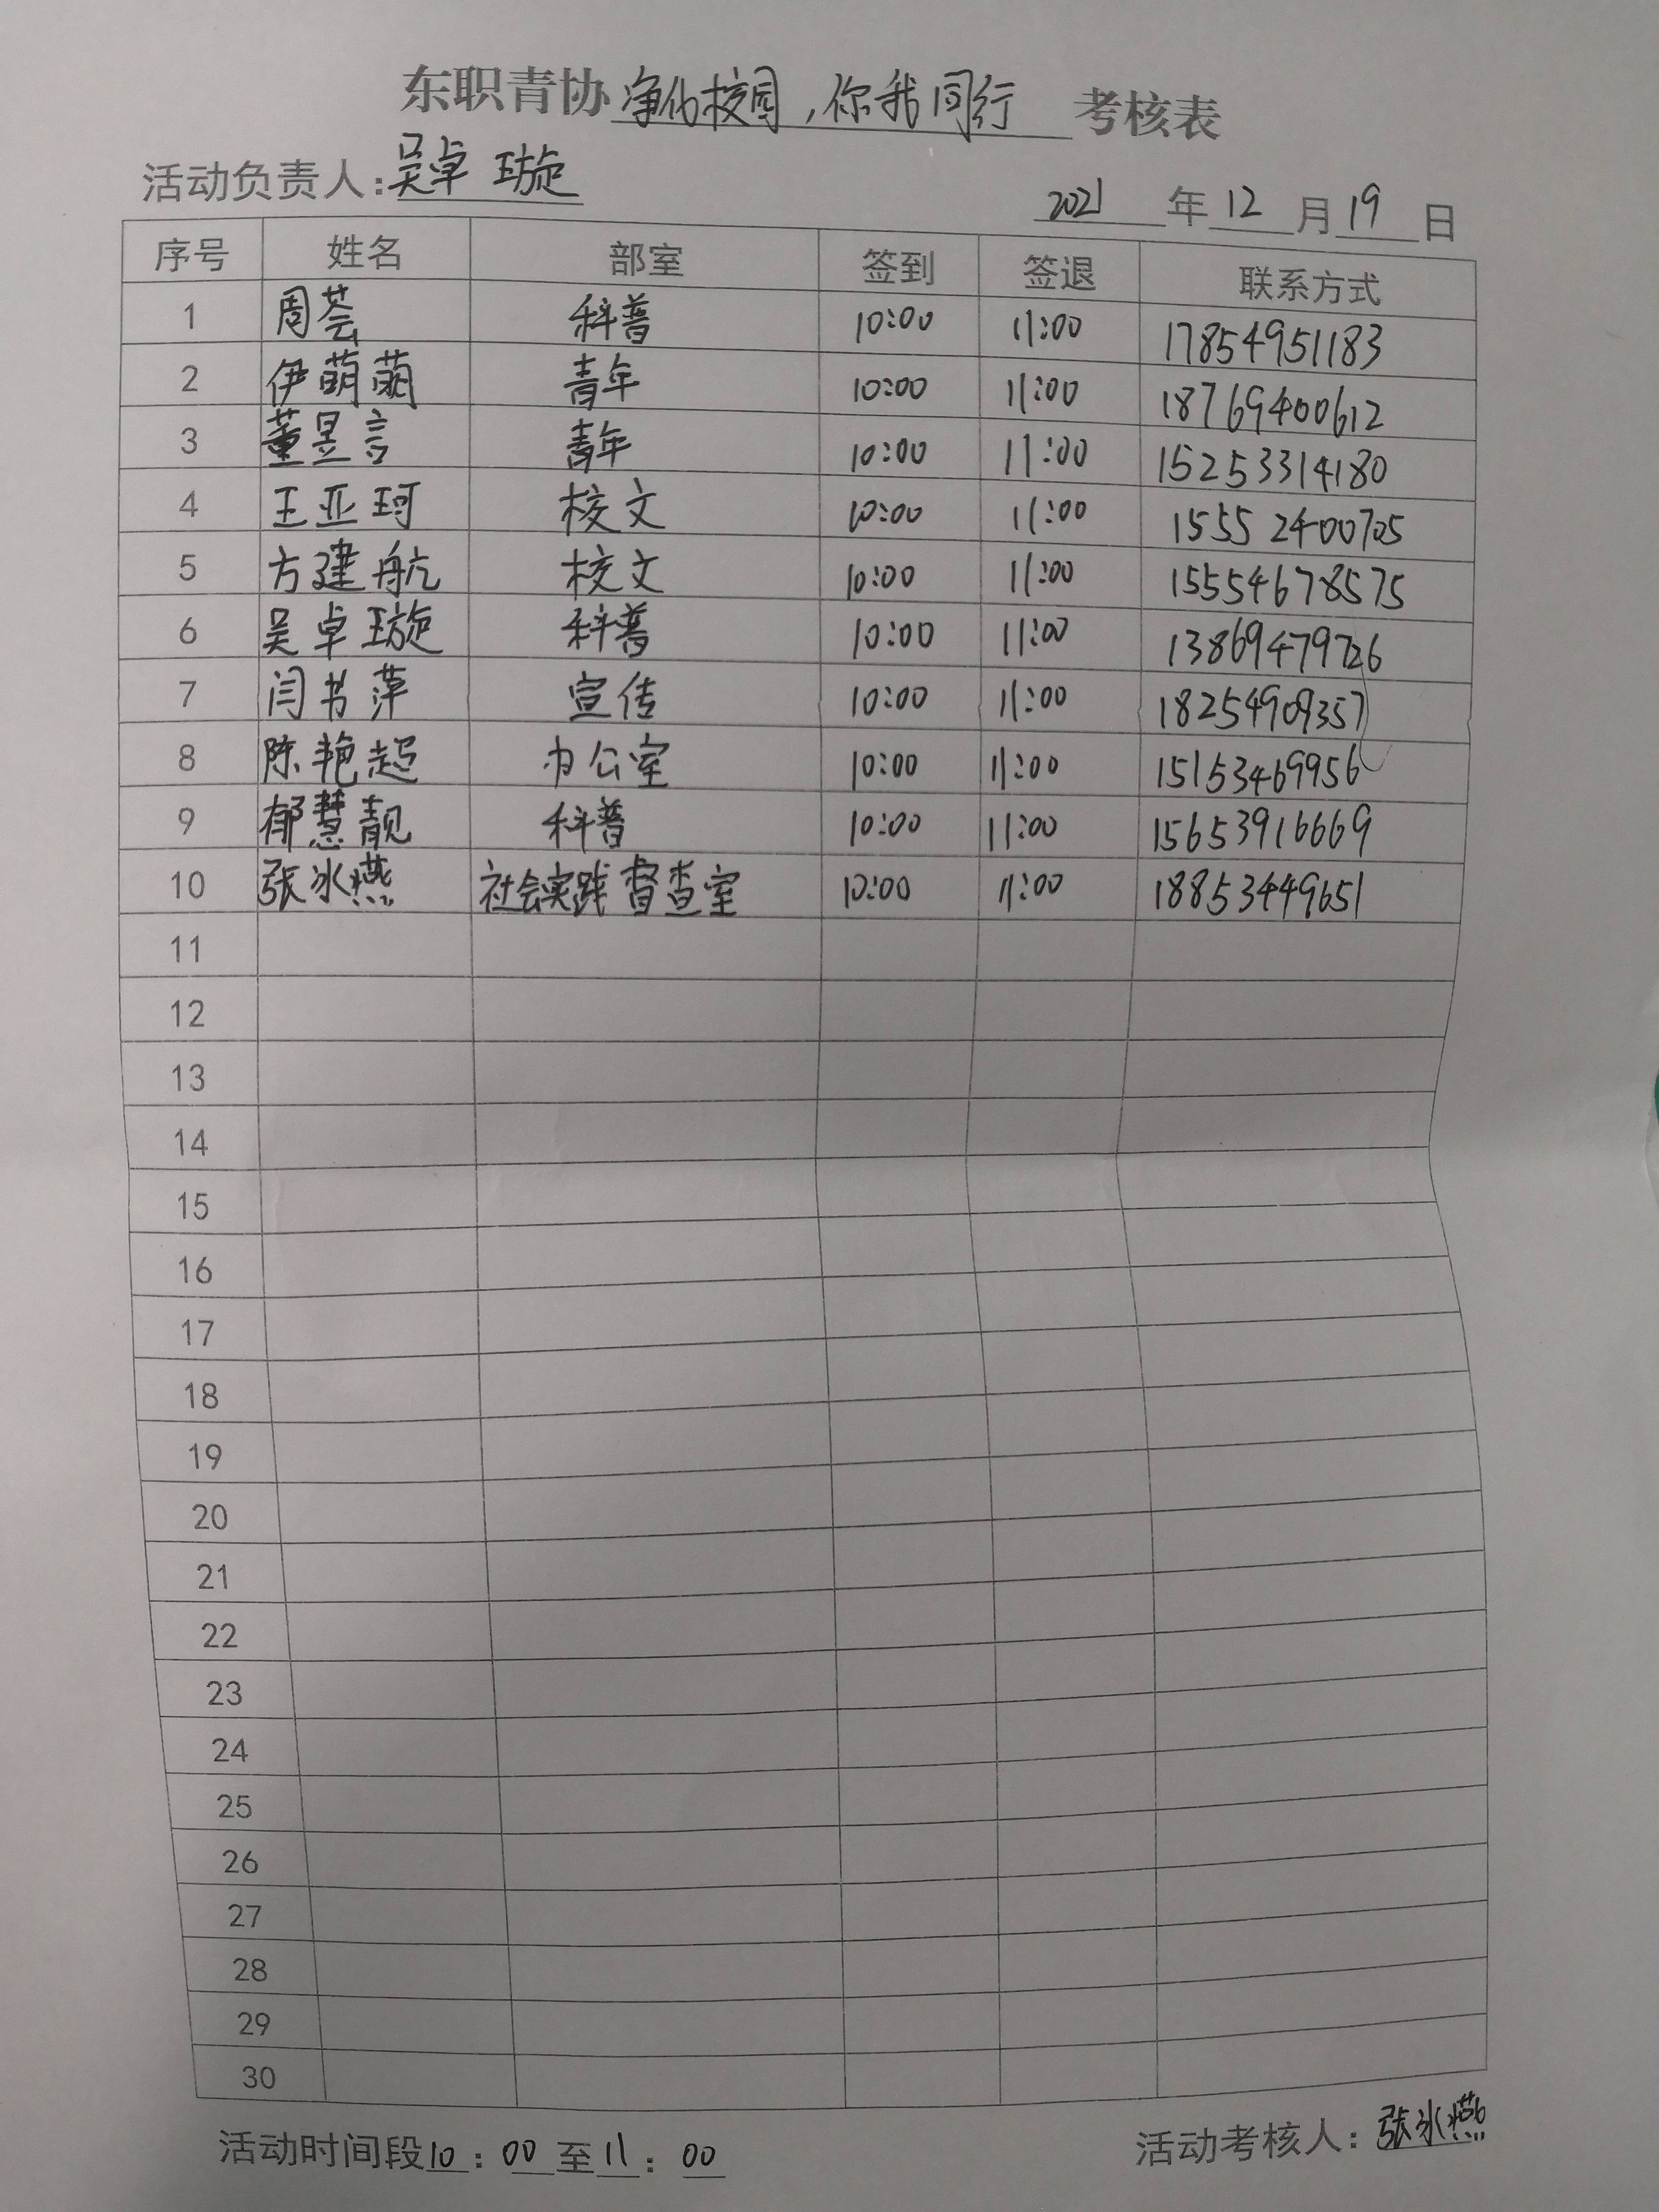 东职青协净化校园，你我同行 考核表
活动负责人：吴卓璇
2021年12月19日
序号 姓名 部室 签到 签退 联系方式
1 周荟 科普 10:00 11:00 17854951183
2 伊萌萌 青年 10:00 11:00 18769400612
3 董昱言 青年 10:00 11:00 15253314180
4 王亚珂 校文 10:00 11:00 15552400705
5 方建航 校文 10:00 11:00 15554678575
6 吴卓璇 科普 10:00 11:00 13869479726
7 闫书萍 宣传 10:00 11:00 18254909357
8 陈艳超 办公室 10:00 11:00 15153469956
9 郁慧靓 科普 10:00 11:00 15653916669
10 张冰燕 社会实践督查室 10:00 11:00 18853449651
11
12
13
14
15
16
17
18
19
20
21
22
23
24
25
26
27
28
29
30
活动时间段10：00至11：00 活动考核人：张冰燕